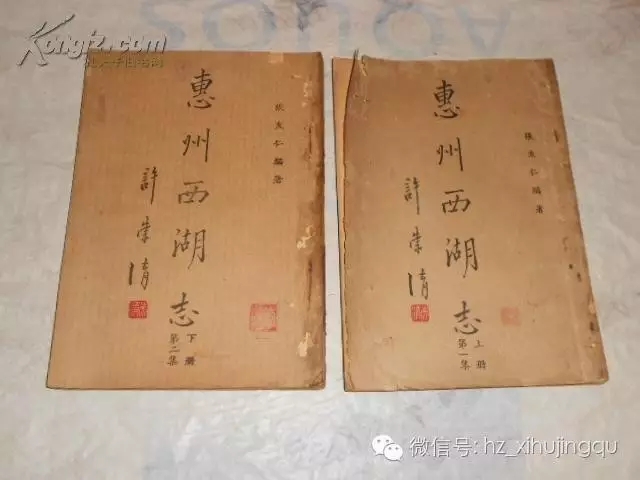 Kongfz.com
孔夫子旧书网
張友仁編著
惠州西湖志
許崇清
下册
第二集
張友仁編著
惠州西湖志
許崇清
上册
第一集
微信号: hz_xihujingqu